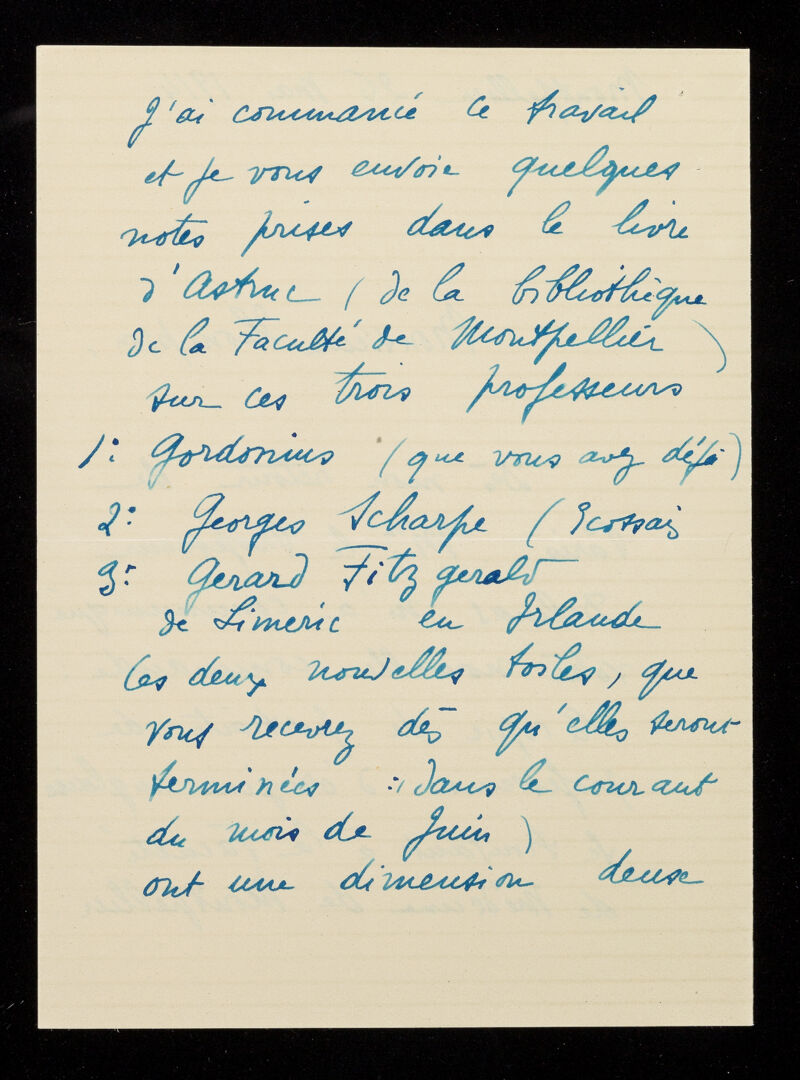 J'ai commancé ce travail
et je vous envoie quelques
notes prises dans le livre
d'Astruc (de la bibliothèque
de la Faculté de Montpellier)
sur ces trois professeurs
1: Gordonius (que vous avez déjà)
2: Georges Scharpe (Ecossais
3: Gerard Fitzgerald
de Limeric en Irlande
Ces deux nouvelles toiles, que
vous recevrez dès qu'elles seront
terminées :(dans le courant
du mois de Juin)
ont une dimension